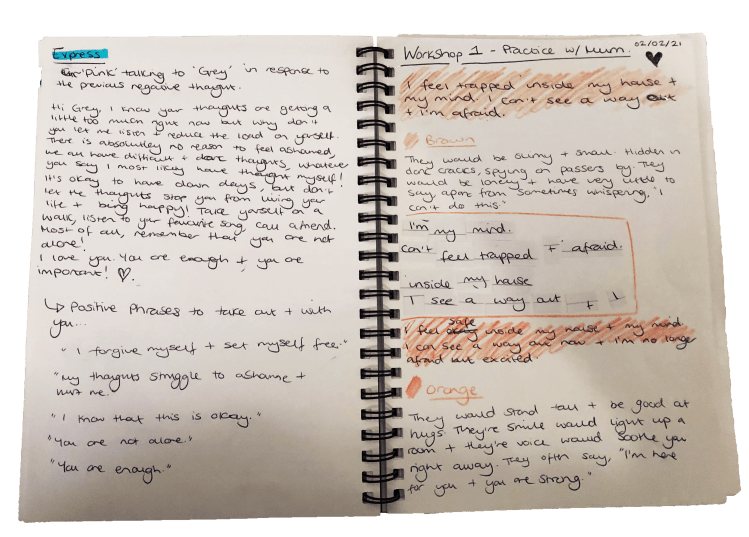 Express
'Pink' talking to 'Grey' in response to
the previous negative thought.
Hi Grey, I know your thoughts are getting a
little too much right now but why don't
you let me listen + reduce the load on yourself.
There is absolutley no reason to feel ashamed,
we all have difficult + dark thoughts, whatever
you say I most likely have thought myself!
It's okay to have down days, but don't
let the thoughts stop you from living your
life + being happy! Take yourself on a
walk, listen to your favourite song, call a friend.
Most of all, remember that you are not
alone!
I love you. You are enough + you are
important! ♡.
↳ Positive Phrases to take out + with
you...
"I forgive myself + set myself free."
"My thoughts struggle to ashame +
hurt me."
"I know that this is okay."
"You are not alone."
"You are enough."
Workshop 1 - Practice w/ Mum. 02/02/21
I feel trapped inside my house +
my mind. I can't see a way out
+ I'm afraid.
Brown
They would be slimy + small. Hidden in
dark cracks, spying on passers by. They
would be lonely + have very little to
say, apart from sometimes whispering, "I
can't do this."
I'm my mind.
can't feel trapped + afraid.
inside my house
I see a way out + I
I feel safe inside my house + my mind.
I can see a way out now + I'm no longer
afraid but excited.
Orange
They would stand tall + be good at
hugs. They're smile would light up a
room + they're voice would soothe you
right away. They often say, "I'm here
for you + you are strong."